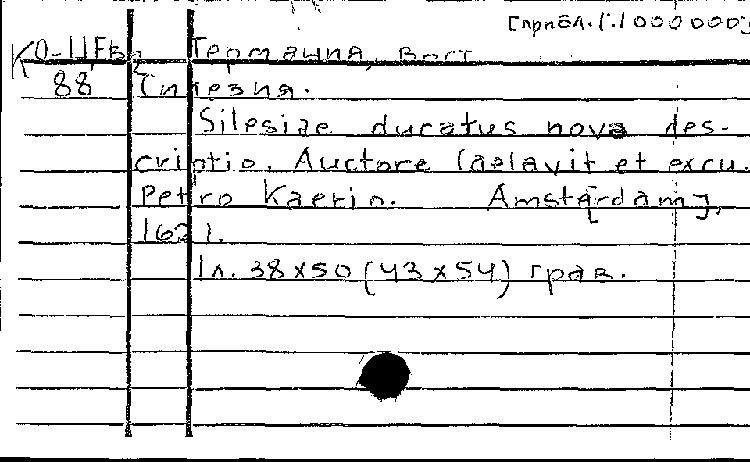 [прибл. 1:1000000]
КО-ЦЕвр Германия, Вост.
88 Силезия.
Silesiae ducatus nova des-
criptio. Auctore (aelavit et excu.
Petro Kaerio. Amst[erdam],
1621.
1 л. 38x50 (43x54) грав.